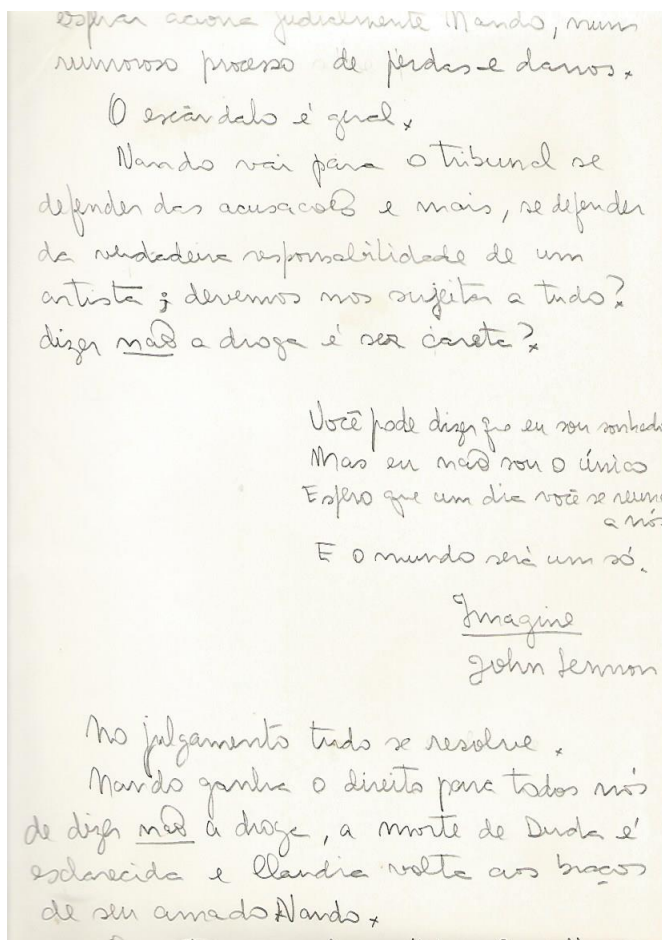 esperar aciona judicialmente Nando, num
rumoroso processo de perdas e danos.
O escândalo é geral.
Nando vai para o tribunal se
defender das acusações e mais, se defender
da verdadeira responsabilidade de um
artista; devemos nos sujeitar a tudo?
dizer não a droga é ser careta?
Você pode dizer que eu sou sonhado
Mas eu não sou o único
Espero que um dia você se reuna
a nós
E o mundo será um só.
Imagine
John Lennon
No julgamento tudo se resolve.
Nando ganha o direito para todos nós
de dizer não a droga, a morte de Duda é
esclarecida e Claudia volta aos braços
de seu amado Nando.